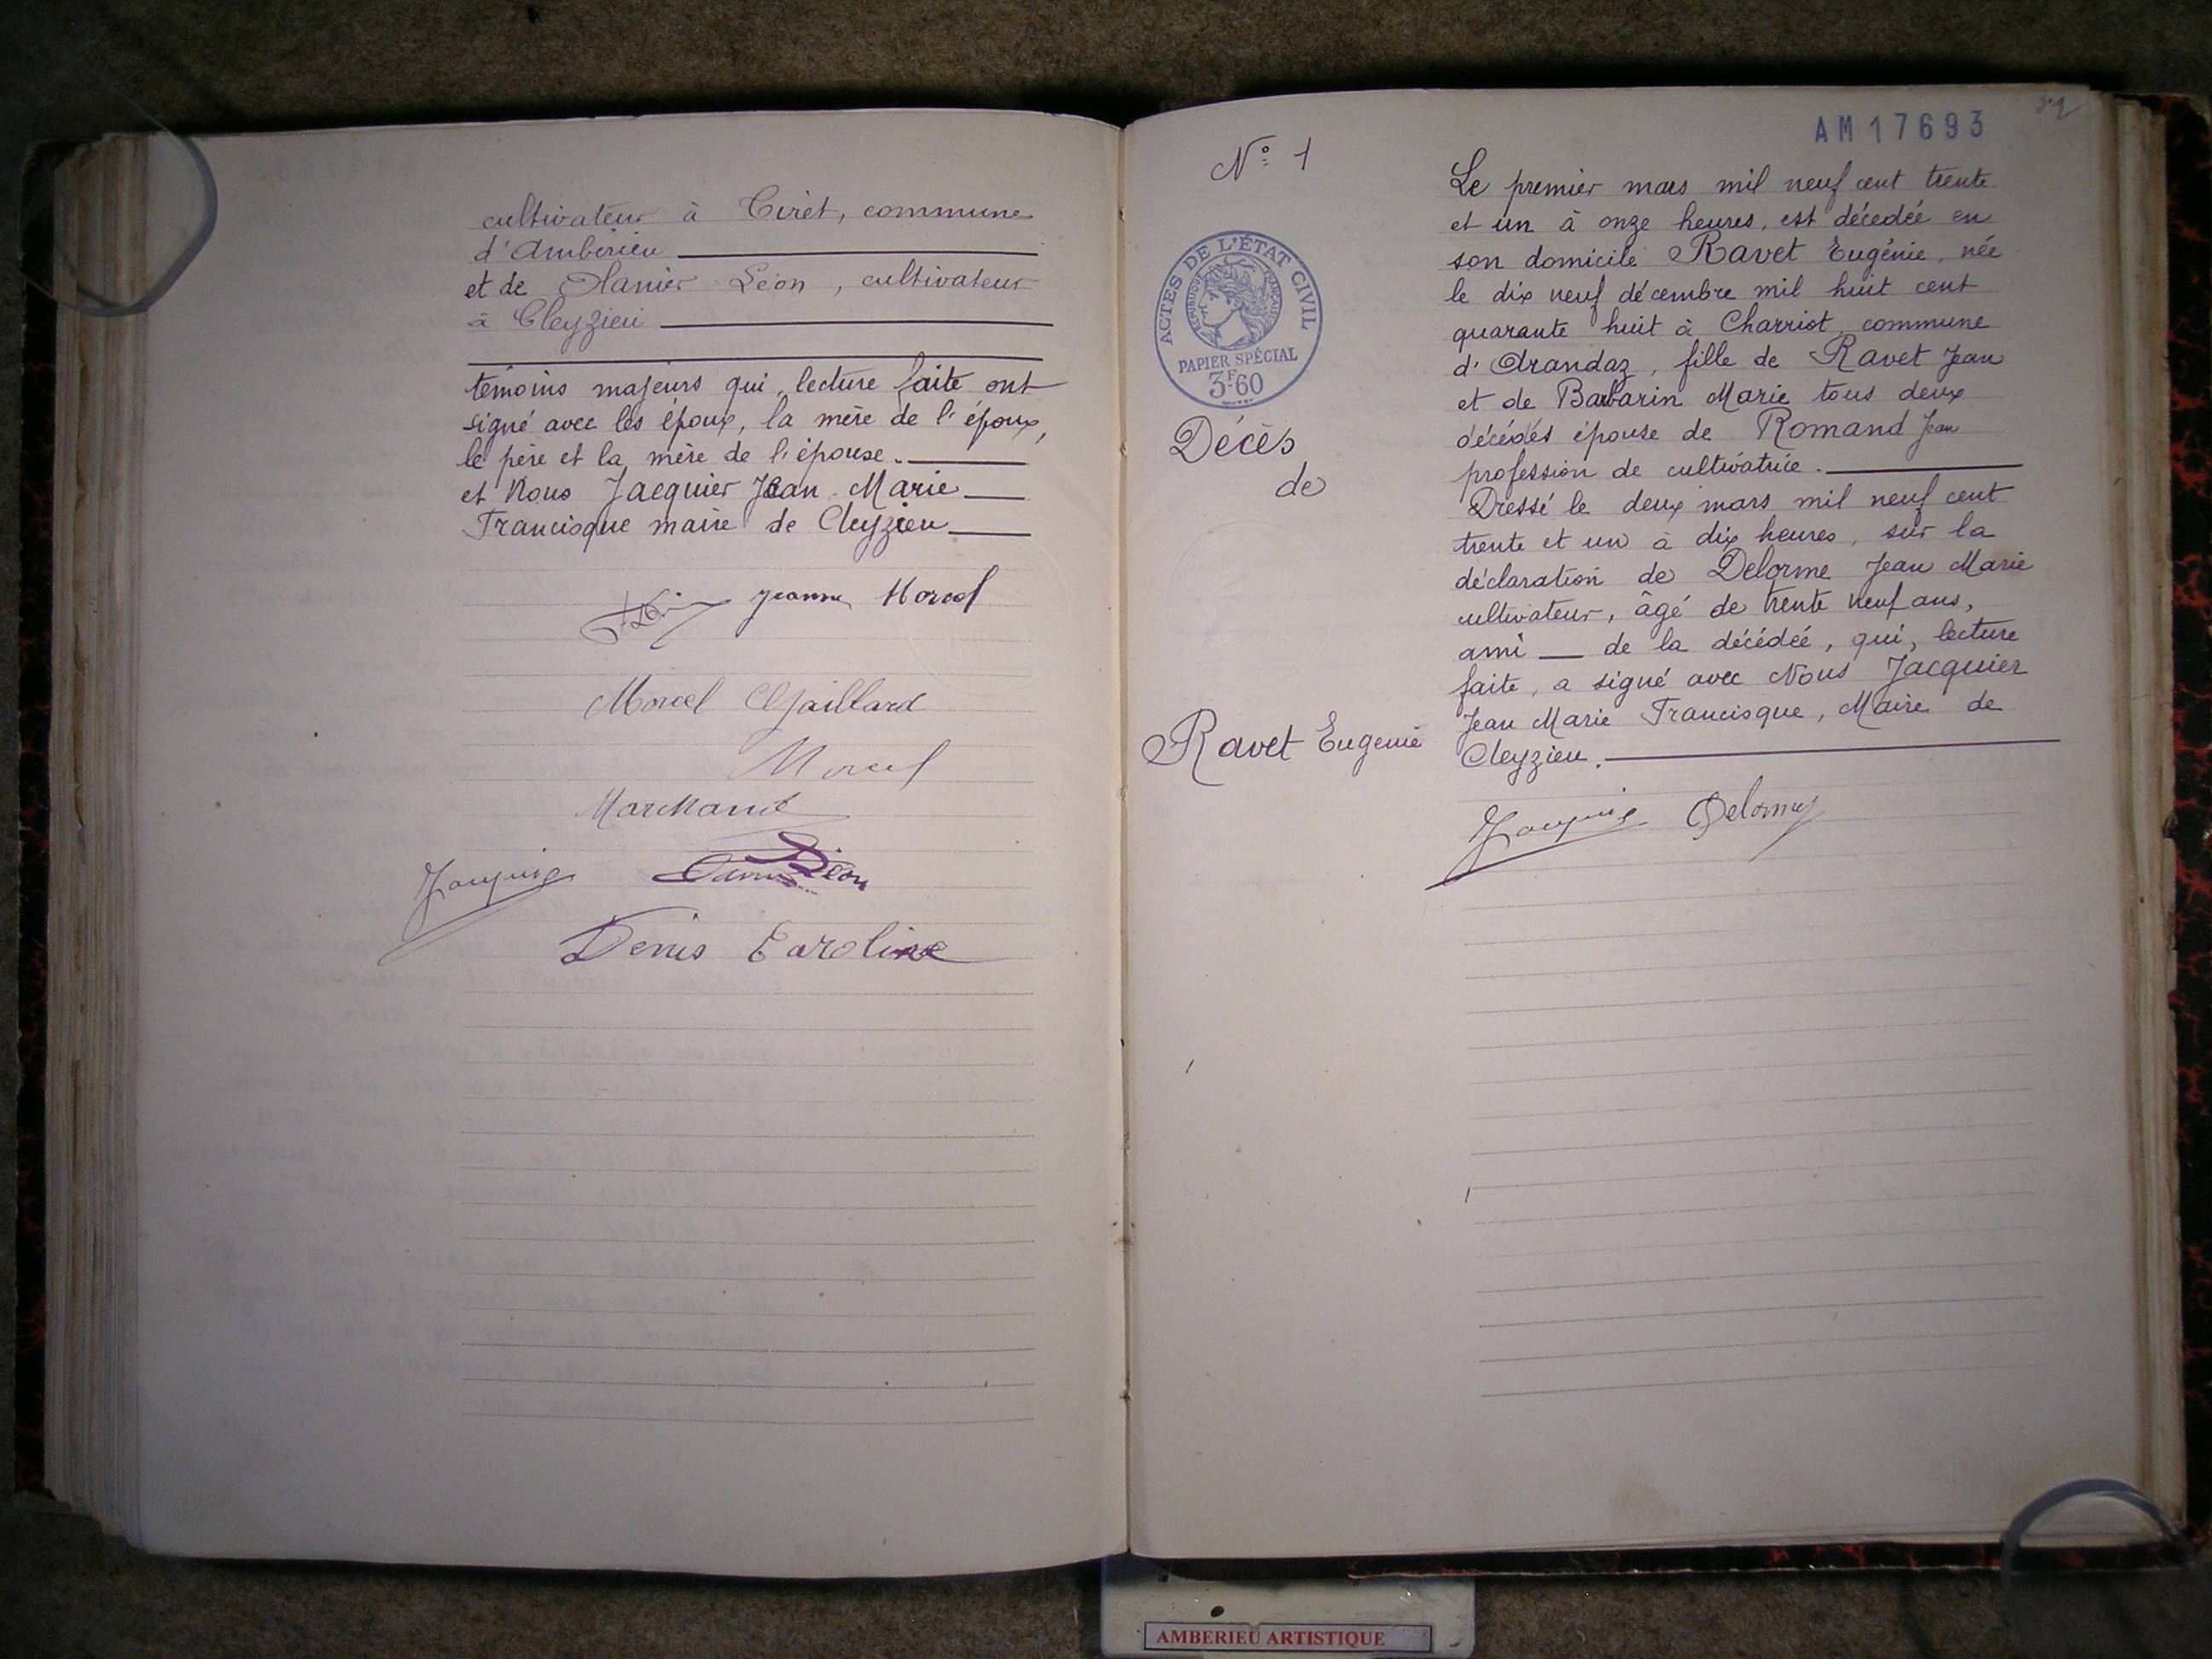 cultivateur à Tiret, commune
d'Ambérieu
et de Lanier Léon, cultivateur
à Cleyzieu
témoins majeurs qui, lecture faite ont
signé avec les époux, la mère de l'époux,
le père et la mère de l'épouse.
et Nous Jacquier Jean Marie
Francisque maire de Cleyzieu
Jeanne Morcel
Morcel Gaillard
Morcel
Marchand
Jacquier Léon
Denis Caroline
AM17693
N° 1
ACTES DE L'ÉTAT CIVIL
RÉPUBLIQUE FRANÇAISE
PAPIER SPÉCIAL
3F60
Décès
de
Ravet Eugenie
Le premier mars mil neuf cent trente
et un à onze heures, est décédée en
son domicile Ravet Eugénie, née
le dix neuf décembre mil huit cent
quarante huit à Charriot, commune
d'Arandaz, fille de Ravet Jean
et de Barbarin Marie tous deux
décédés épouse de Romand Jean
profession de cultivatrice.
Dressé le deux mars mil neuf cent
trente et un à dix heures, sur la
déclaration de Delorme Jean Marie
cultivateur, âgé de trente neuf ans,
ami de la décédée, qui, lecture
faite, a signé avec Nous Jacquier
Jean Marie Francisque, Maire de
Cleyzieu.
Jacquier Delorme
AMBERIEU ARTISTIQUE